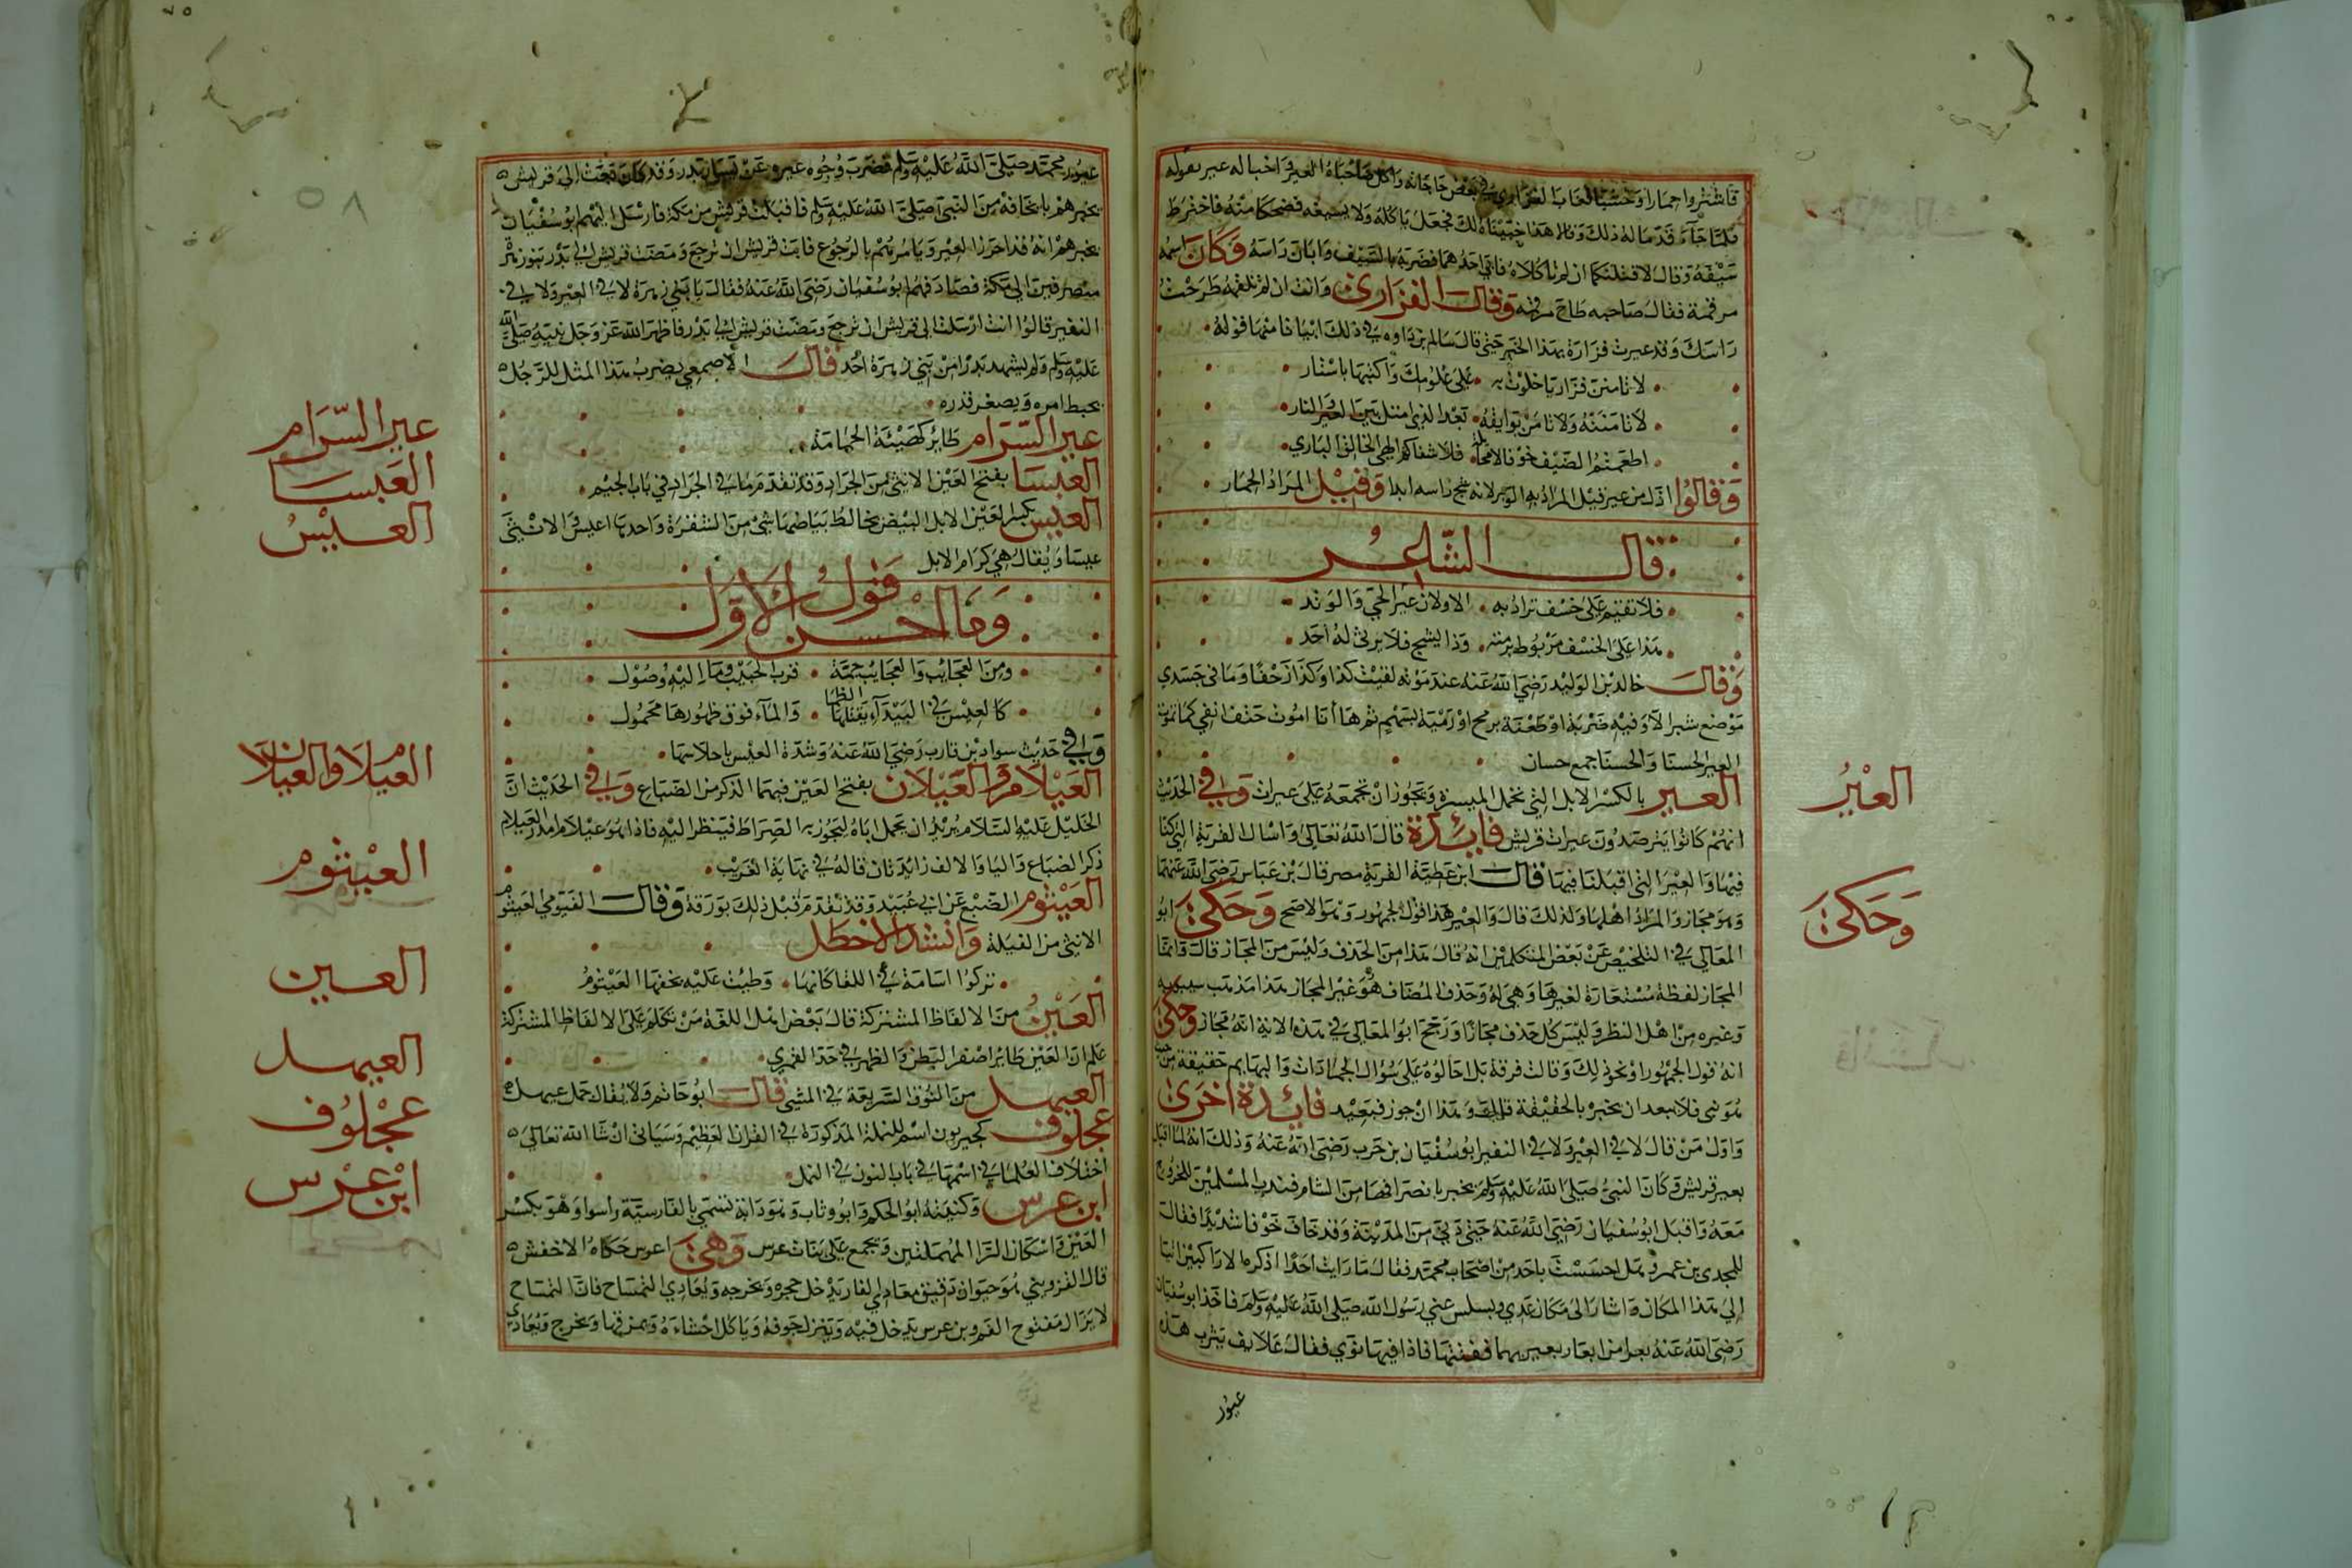 فاشتروا حمارا وحشيا فغاب الفزاري في بعض حاجاته واكل صاحباه العير واخبا له عير بقوله
فلما جاء قدما له ذلك وقالا هذا خبيناه لك فجعل ياكله ولا يسيغه فضحكا منه فاخترط
سيفه وقال لاقتلنكما ان لم تاكلاه فابى احدهما فضربه بالسيف وابان راسه فكان اسمه
مرقمة فقال صاحبه طاح مرقمه وقال الفزاري وانت ان لم تلقمه طرحت
راسك وقد عيرت فزارة بهذا الخبر حتى قال سالم بن داره في ذلك ابياتا منها قوله
لا تامنن فزاريا خلوت به على قلوصك واكتبها باسيار
لا تامننه ولا تامن بوايقه بعد الذي امتل اير العير في النار
اطعمتم الضيف جوفانا مخاتلة فلا سقاكم الهي الخالق الباري
وقالوا اذل من عير قيل المراد به الوتد لانه يشج راسه ابدا وقيل المراد الحمار
قال الشاعر
فلا تقيم على خسف تراد به الا الاذلان عير الحي والوتد
هذا على الخسف مربوط برمته وذا يشج فلا يرثى له احد
وقال خالد بن الوليد رضي الله عنه عند موته لقيت كذا وكذا زحفا وما في جسدي
موضع شبر الا وفيه ضربة او طعنة برمح او رمية بسهم ثم ها انا اموت حتف انفي كما تموت
العير الحسنا والحسنا جمع حسان
العير بالكسر الابل التي تحمل الميرة ويجوز ان تجمعه على عيرات وفي الحديث
انهم كانوا يترصدون عيرات قريش فايدة قال الله تعالى واسال القرية التي كنا
فيها والعير التي اقبلنا فيها قال ابن عطية القرية مصر قال ابن عباس رضي الله عنهما
وهو مجاز والمراد اهلها وكذلك قال والعير هذا قول الجمهور وهو الاصح وحكى ابو
المعالي في التلخيص عن بعض المتكلمين انه قال هذا من الحذف وليس من المجاز قال وانما
المجاز لفظة مستعارة لغيرها وهي له وحذف المضاف هو غير المجاز هذا مذهب سيبويه
وغيره من اهل النظر وليس كل حذف مجازا ورجح ابو المعالي في هذه الاية انه مجاز وحكى
انه قول الجمهور او نحو ذلك وقالت فرقة بل احالوه على سؤال الجمادات والبهايم حقيقة من حيث
هو نبي فلا يبعد ان تخبره بالحقيقة قال وهذا ان جوز فبعيد فايدة اخرى
واول من قال لا في العير ولا في النفير ابو سفيان بن حرب رضي الله عنه وذلك انه لما اقبل
بعير قريش وكان النبي صلى الله عليه وسلم تخبر بانصرافها من الشام فندب المسلمين للخروج
معه واقبل ابو سفيان رضي الله عنه حتى دنى من المدينة وقد خاف خوفا شديدا فقال
للمجدى بن عمرو هل احسست باحد من اصحاب محمد فقال ما رايت احدا اذكره الا راكبين اتيا
الى هذا المكان واشار الى مكان عدي وبسبس عيني رسول الله صلى الله عليه وسلم فاخذ ابو سفيان
رضي الله عنه بعرا من ابعار بعيريهما ففتها فاذا فيها نوى فقال علايف يثرب هذه
عيون
العير
وحكى
عيون محمد صلى الله عليه وسلم فضرب وجوه عيره عن يسار بدر وقد كان بعث الى قريش
يخبرهم بما يخافه من النبي صلى الله عليه وسلم فاقبلت قريش من مكة فارسل اليهم ابو سفيان
يخبرهم انه قد احرز العير ويامرهم بالرجوع فابت قريش ان ترجع ومضت قريش الى بدر ورجع بنو زهرة
منصرفين الى مكة فصادفهم ابو سفيان رضي الله عنه فقال يا بني زهرة لا في العير ولا في
النفير قالوا انت ارسلت الى قريش ان ترجع ومضت قريش الى بدر فاظهر الله عز وجل نبيه صلى الله
عليه وسلم ولم يشهد بدرا من بني زهرة احد قال الاصمعي يضرب هذا المثل للرجل
يحبط امره ويصغر قدره
عير السرام طاير كهيئة الحمامة
العبسا بفتح العين الانثى من الجراد وقد تقدم ما في الجراد في باب الجيم
العيس بكسر العين الابل البيض يخالط بياضها شي من الشقرة واحدها اعيس والانثى
عيسا ويقال هي كرام الابل
وما احسن قول الاول
ومن العجايب والعجايب جمة قرب الحبيب وما اليه وصول
كالعيس في البيداء يقتلها الظما والماء فوق ظهورها محمول
وفي حديث سواد بن قارب رضي الله عنه وشدة العيس باحلاسها
العيلام والعيلان بفتح العين فيهما الذكر من الضباع وفي الحديث ان
الخليل عليه السلام يريد ان يحمل اباه ليجوز به الصراط فينظر اليه فاذا هو عيلام امدر العيلام
ذكر الضباع واليا والالف زايدتان قاله في نهاية الغريب
العيثوم الضبع عن ابي عبيد وقد تقدم قبل ذلك بورقة وقال الفيومي العيثوم
الانثى من الفيلة وانشد الاخطل
تركوا اسامة في اللقا كانما وطيت عليه بخفها العيثوم
العين من الالفاظ المشتركة قال بعض اهل اللغة من تكلم على الالفاظ المشتركة
علم ان العين طاير اصفر البطن والظهر في حد القمري
العيهل من النوق السريعة في المشي قال ابو حاتم ولا يقال جمل عيهل
عجلوف كحيزبون اسم للنملة المذكورة في القران العظيم وسياتي ان شا الله تعالى
اختلاف العلما في اسمها في باب النون في النمل
ابن عرس وكنيته ابو الحكم وابو وثاب وهو دابة تسمى بالفارسية راسوا وهو بكسر
العين واسكان الرا المهملتين ويجمع على بنات عرس وهي اعرس حكاه الاخفش
قال القزويني هو حيوان دقيق معادي الفار يدخل جحره ويخرجه ويعادي التمساح فان التمساح
لا يزال مفتوح الفم وبن عرس يدخل فيه وينزل جوفه وياكل احشاءه ويمزقها ويخرج ويعادي
عير السرام
العبسا
العيس
العيلام والعيلان
العيثوم
العين
العيهل
عجلوف
ابن عرس